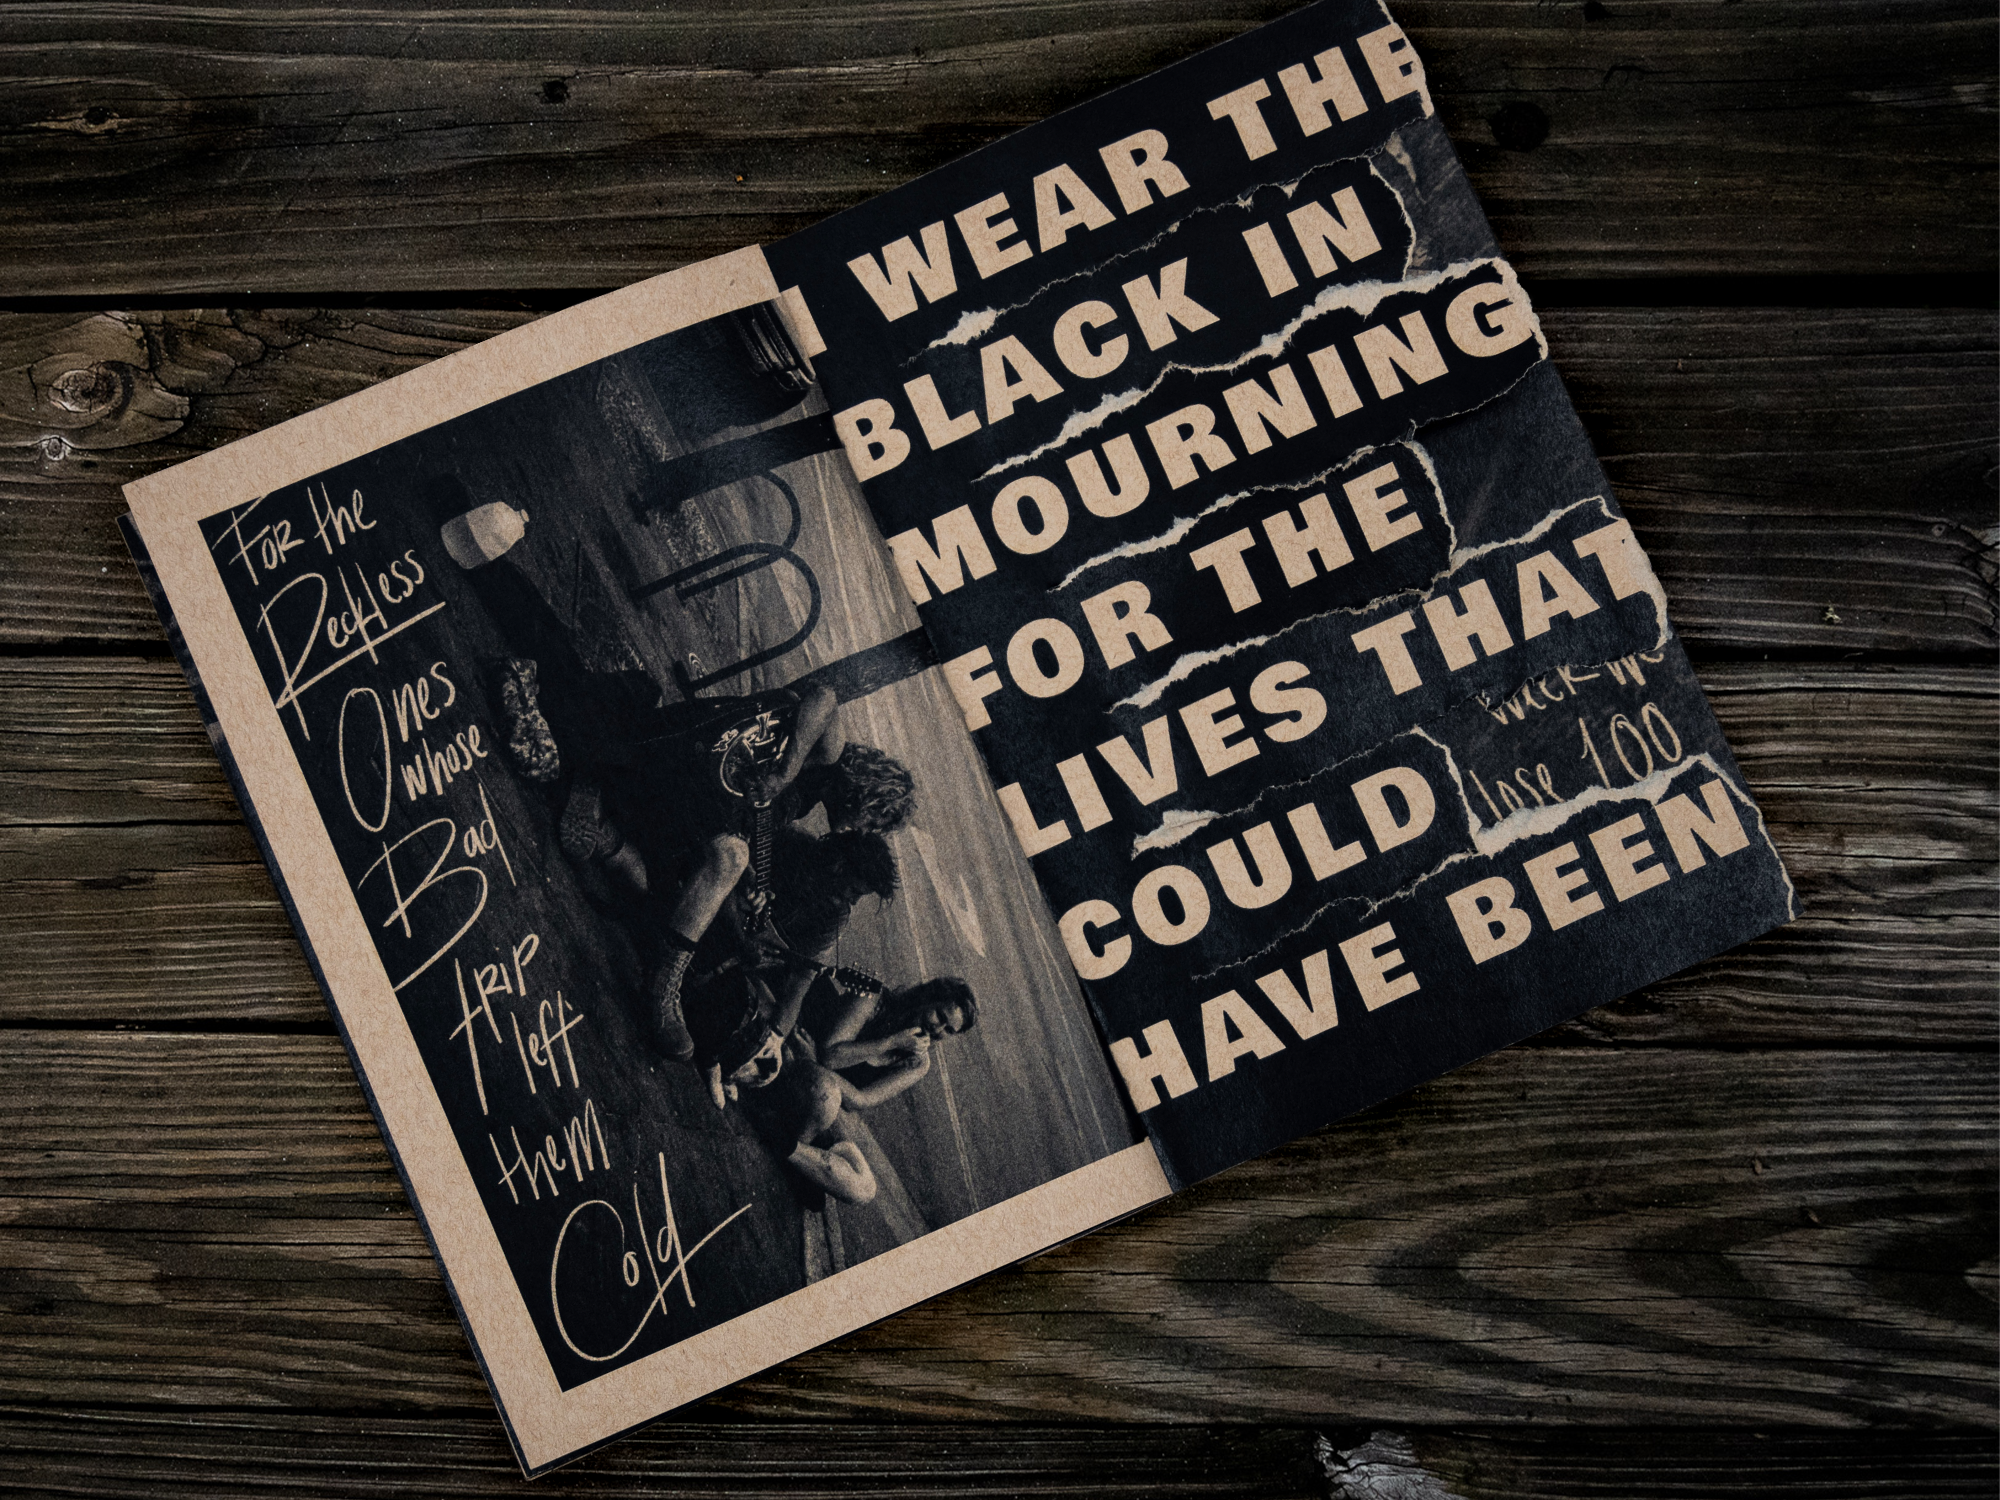 FOR the
Reckless
Ones
whose
Bad
trip
left
them
Cold
I WEAR THE
BLACK IN
MOURNING
FOR THE
LIVES THAT
COULD
HAVE BEEN
lose 100